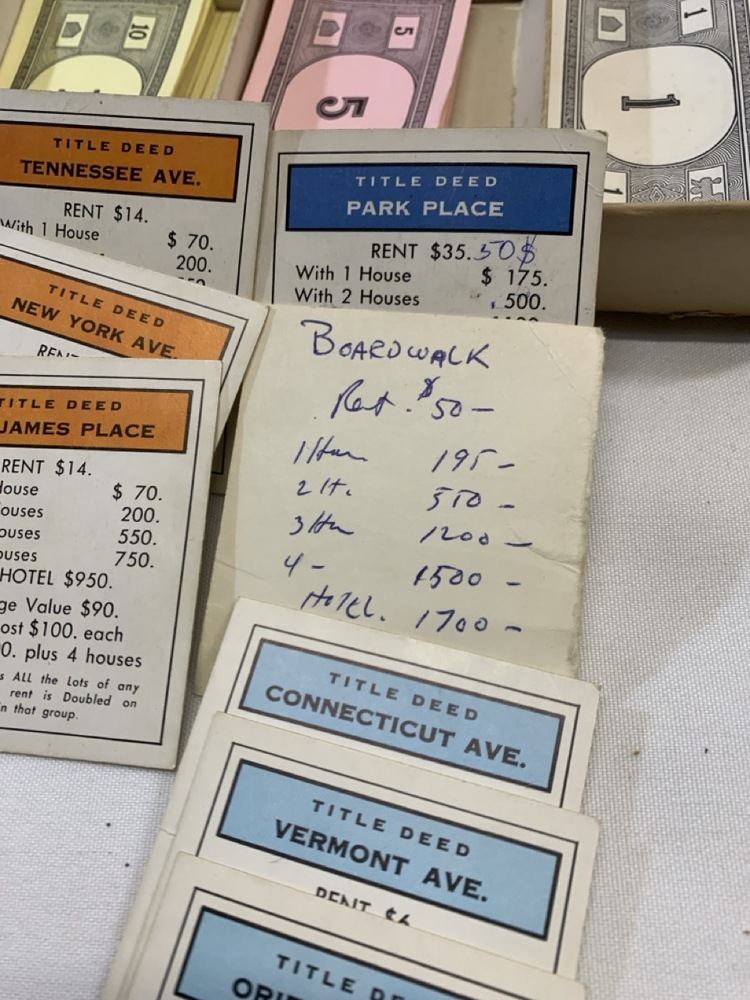 10
5
5
1
1
1
TITLE DEED
TENNESSEE AVE.
RENT $14.
With 1 House $ 70.
200.
TITLE DEED
PARK PLACE
RENT $35. 50$
With 1 House $ 175.
With 2 Houses 500.
TITLE DEED
NEW YORK AVE.
TITLE DEED
JAMES PLACE
RENT $14.
House $ 70.
ouses 200.
ouses 550.
ouses 750.
HOTEL $950.
ge Value $90.
ost $100. each
0. plus 4 houses
s ALL the Lots of any
rent is Doubled on
in that group.
BOARDWALK
Rent. $50-
1 Hou 195-
2 H. 550-
3 Hou 1200-
4- 1500-
HOTEL. 1700-
TITLE DEED
CONNECTICUT AVE.
TITLE DEED
VERMONT AVE.
RENT $6
TITLE DE
ORIE